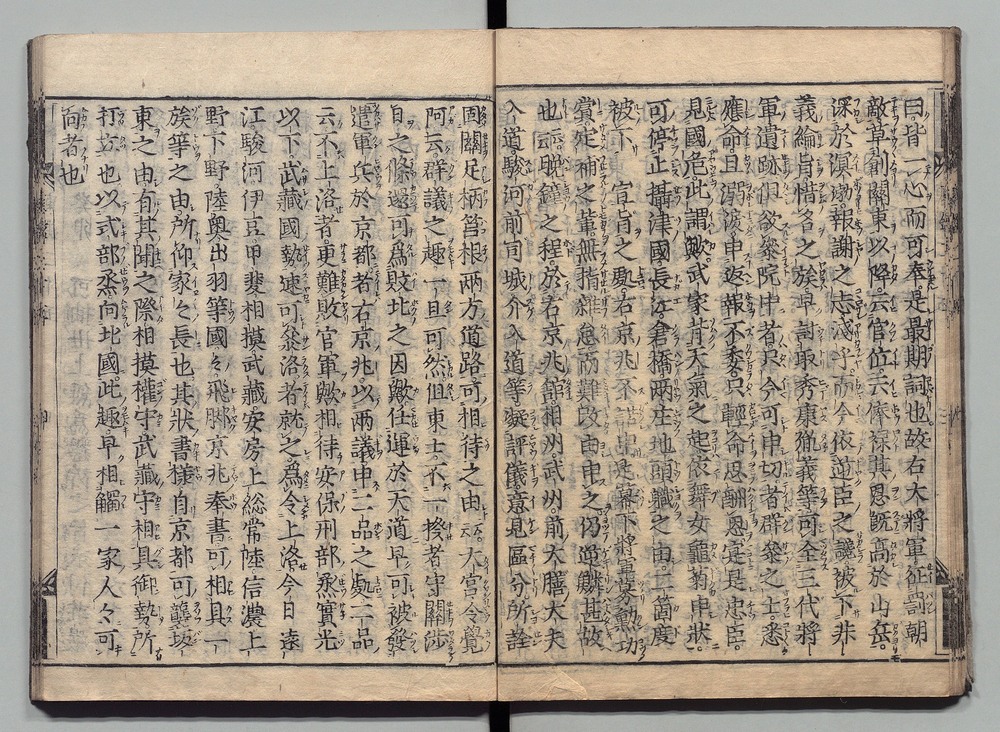 曰皆一心而可奉是最期詞也故右大將軍征討朝
敵草創關東以降云官位云俸祿其恩既高於山岳
深於溟渤報謝之志淺乎而今依逆臣之讒被下非
義綸旨惜名之族早討取秀康胤義等可全三代將
軍遺跡但欲參院中者只今可申切者群參之士悉
應命且溺淚申返報不委只輕命思酬恩寔是忠臣
見國危此謂歟武家背天氣之起依舞女龜菊申狀
可停止攝津國長江倉橋兩庄地頭職之由二箇度
被下 宣旨之處右京兆不諾申是幕下將軍募勳功
賞定補之輩無指雜怠而難改由申之仍逆鱗甚故
也云晩鐘之程於右京兆館相州武州前大膳大夫
入道駿河前司城介入道等凝評儀意見區分所詮
固關足柄筥根兩方道路可相待之由云大官令覺
阿云群議之趣一旦可然但東士不一揆者守關渉
日之條還可爲敗北之因歟任運於天道早可被發
遣軍兵於京都者右京兆以兩議申二品之處二品
云不上洛者更難敗官軍歟相待安保刑部烝實光
以下武藏國勢速可參洛者就之爲令上洛今日遠
江駿河伊豆甲斐相摸武藏安房上総常陸信濃上
野下野陸奥出羽等國々飛脚京兆奉書可相具一
族等之由所仰家々長也其狀書樣自京都可襲坂
東之由有其聞之際相摸權守武藏守相具御勢所
打立也以式部烝向北國此趣早相觸一家人々可
向者也